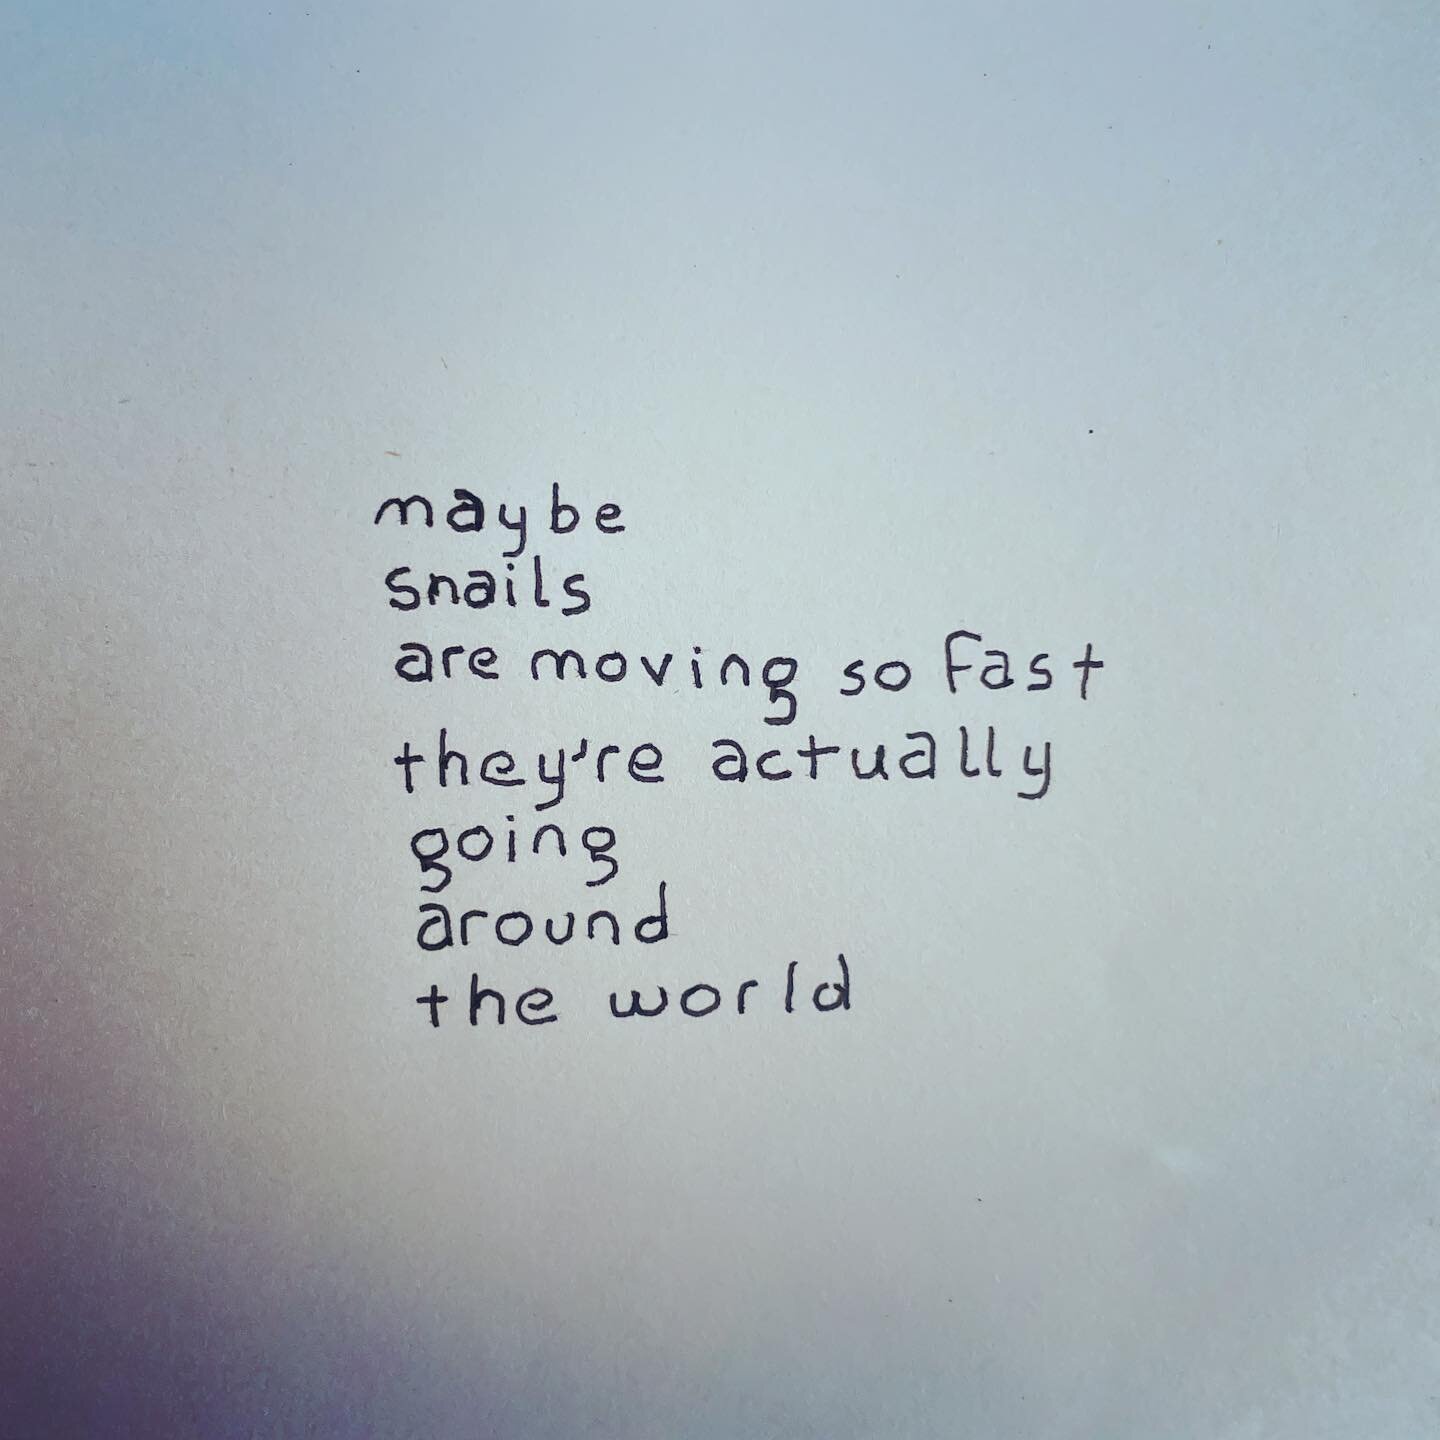 maybe
snails
are moving so fast
they're actually
going
around
the world